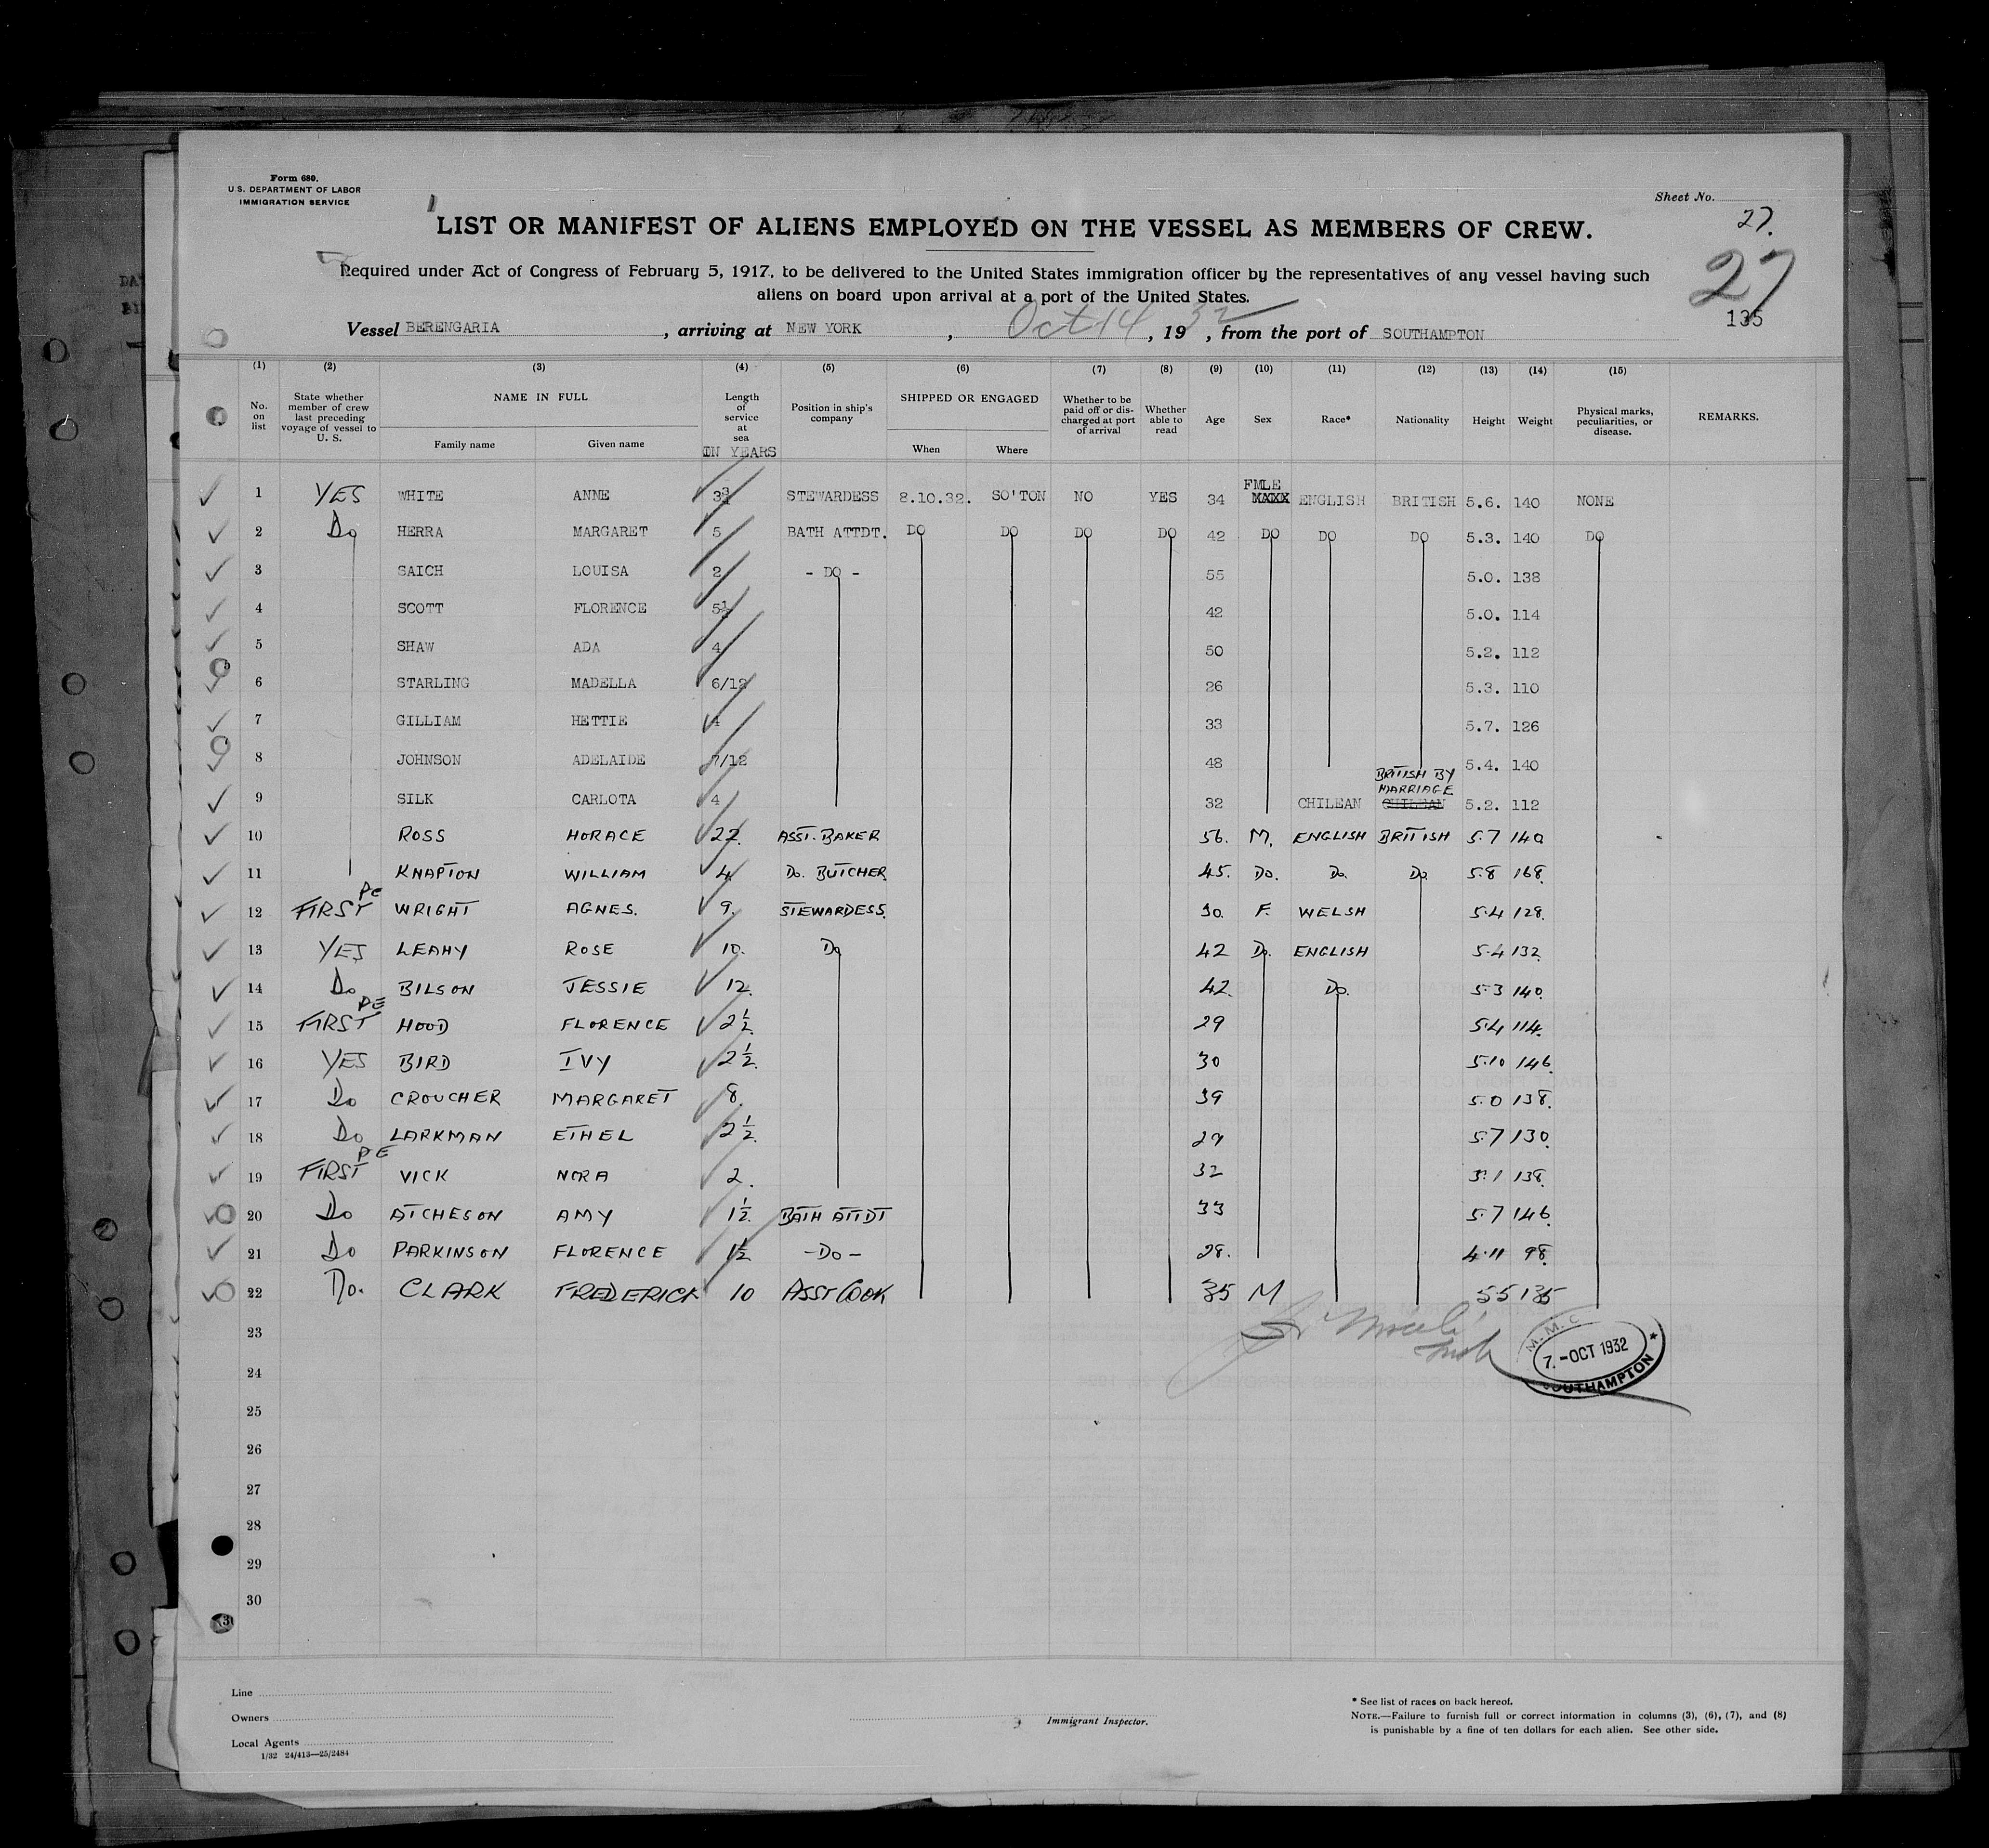 Form 680.
U. S. DEPARTMENT OF LABOR
IMMIGRATION SERVICE
Sheet No.
27.
LIST OR MANIFEST OF ALIENS EMPLOYED ON THE VESSEL AS MEMBERS OF CREW.
27
Required under Act of Congress of February 5, 1917, to be delivered to the United States immigration officer by the representatives of any vessel having such
aliens on board upon arrival at a port of the United States.
135
Vessel BERENGARIA, arriving at NEW YORK, Oct 14, 1932, from the port of SOUTHAMPTON
(1) (2) (3) (4) (5) (6) (7) (8) (9) (10) (11) (12) (13) (14) (15)
No. on list
State whether member of crew last preceding voyage of vessel to U. S.
NAME IN FULL
Family name Given name
Length of service at sea
IN YEARS
Position in ship's company
SHIPPED OR ENGAGED
When Where
Whether to be paid off or discharged at port of arrival
Whether able to read
Age Sex Race* Nationality Height Weight
Physical marks, peculiarities, or disease.
REMARKS.
1 YES WHITE ANNE 3¾ STEWARDESS 8.10.32. SO'TON NO YES 34 FMLE ENGLISH BRITISH 5.6. 140 NONE
2 Do HERRA MARGARET 5 BATH ATTDT. DO DO DO DO 42 DO DO DO 5.3. 140 DO
3 SAICH LOUISA 2 - DO - 55 5.0. 138
4 SCOTT FLORENCE 5½ 42 5.0. 114
5 SHAW ADA 4 50 5.2. 112
6 STARLING MADELLA 6/12 26 5.3. 110
7 GILLIAM HETTIE 4 33 5.7. 126
8 JOHNSON ADELAIDE 7/12 48 5.4. 140
9 SILK CARLOTA 4 32 CHILEAN BRITISH BY MARRIAGE CHILEAN 5.2. 112
10 ROSS HORACE 22. ASST. BAKER 56. M. ENGLISH BRITISH 5.7 140
11 KNAPTON WILLIAM 4 Do. BUTCHER 45. Do. Do. Do 5.8 168.
12 FIRST PE WRIGHT AGNES. 9. STEWARDESS. 30. F. WELSH 5.4 128.
13 YES LEAHY ROSE 10. Do 42 Do. ENGLISH 5.4 132.
14 Do BILSON JESSIE 12. 42. Do. 5.3 140.
15 FIRST PE HOOD FLORENCE 2½. 29 5.4 114.
16 YES BIRD IVY 2½. 30 5.10 146.
17 Do CROUCHER MARGARET 8. 39 5.0 138.
18 Do LARKMAN ETHEL 2½. 29 5.7 130.
19 FIRST PE VICK NORA 2. 32 5.1 138.
20 Do ATCHESON AMY 1½. BATH ATTDT 33 5.7 146.
21 Do PARKINSON FLORENCE 1½. -Do- 28. 4.11 98.
22 Do. CLARK FREDERICK 10 ASST COOK 35 M 5.5 135
23
M. M. C
7.-OCT 1932
SOUTHAMPTON
24
25
26
27
28
29
30
Line
Owners
Local Agents
1/32 24/413—25/2484
Immigrant Inspector.
* See list of races on back hereof.
NOTE.—Failure to furnish full or correct information in columns (3), (6), (7), and (8)
is punishable by a fine of ten dollars for each alien. See other side.